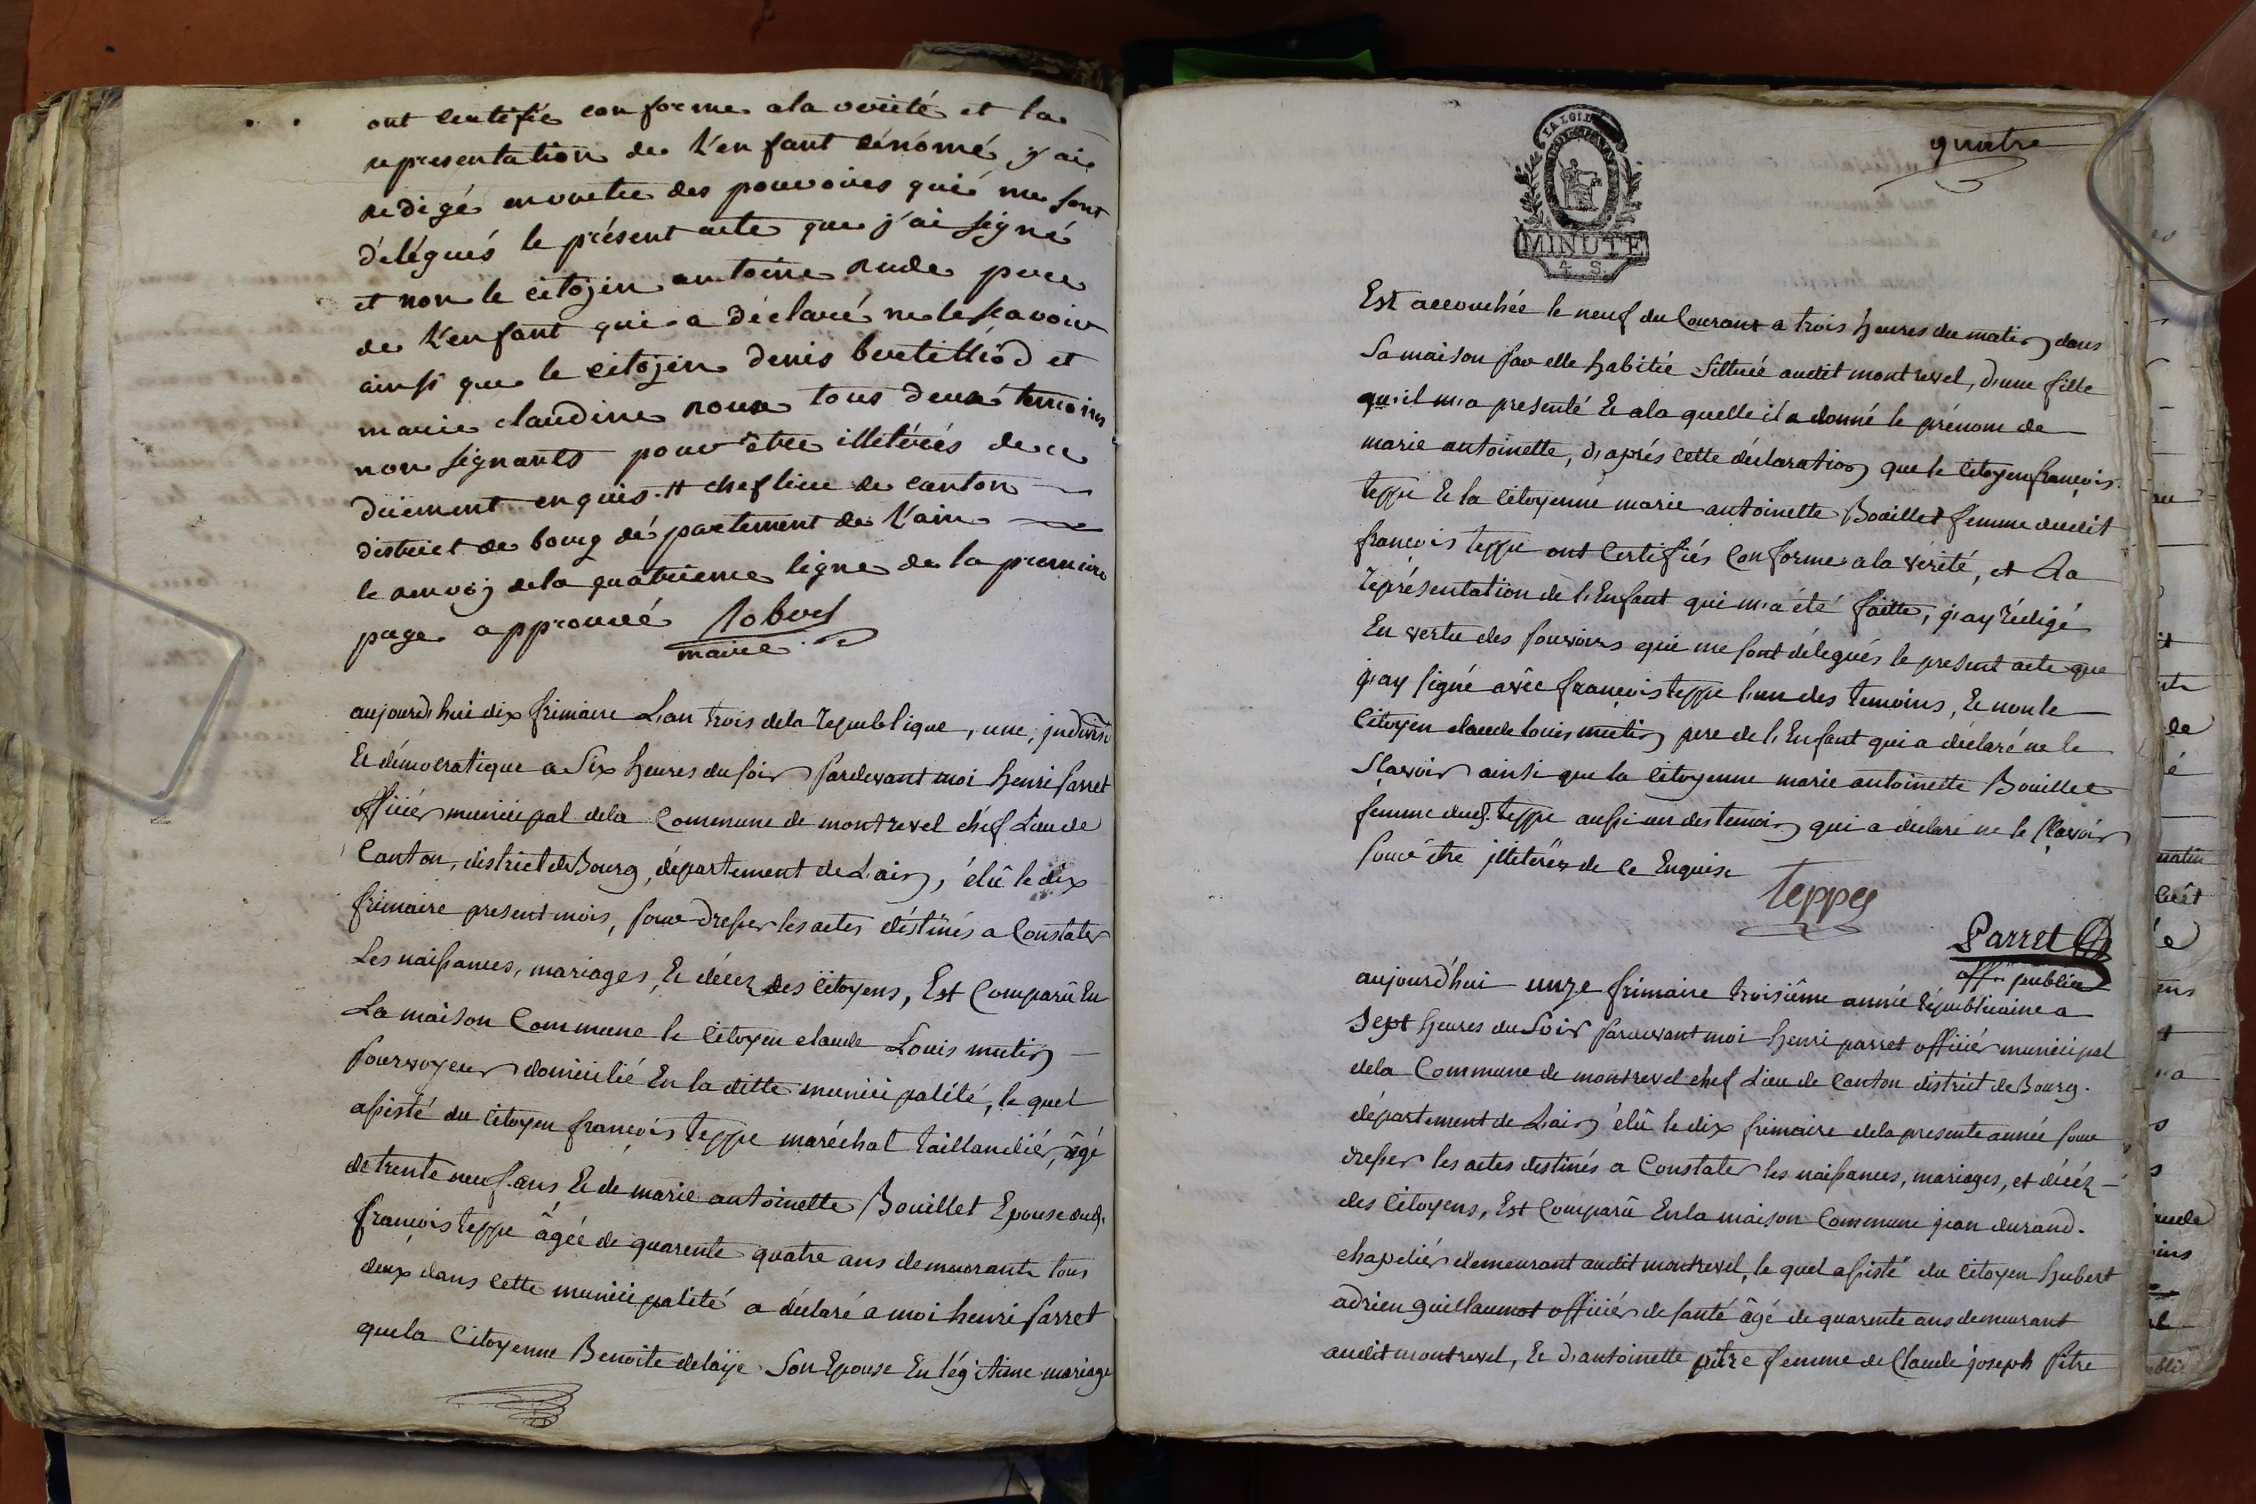 ont certifié conforme ala verité et la
representation de L'enfant dénomé j'ai
redigé envertu des pouvoirs qui me sont
délégués le présent acte que j'ai signé
et non le citojin antoine rude pere
de L'enfant qui a déclaré ne le scavoir
ainsi que le citojin denis bertilliód et
marie claudine roux tous deux temoins
non signants pour être illitérés de ce
düement enquis. # chef lieu de canton
district de bourg département de L'ain
le renvoj dela quatrieme ligne de la premiere
page approuvé
maire
aujourd'hui dix frimaire L'an trois dela republique, une, indivisi
Et démocratique a Six heures du soir pardevant moi henri parret
officiér municipal dela Commune de montrevel chéf Lieu de
Canton, district de Bourg, département de L'ain, élû le dix
frimaire present mois, pour dresser les actes déstinés a Constater
Les naissances, mariages, Et décez des Citoyens, Est Comparû En
La maison Commune le Citoyen claude Louis mutin
pourvoyeur domicilié En la ditte municipalité, le quel
assisté du Citoyen françois teppe maréchal taillandiér, âgé
de trente neuf ans Et de marie antoinette Bouillet Epouse dud.
françois teppe âgée de quarente quatre ans demeurants tous
deux dans cette municipalité a déclaré a moi henri parret
que la Citoyenne Benoite delaÿe Son Epouse En légitime mariage
quatre
LA LOI
MINUTE
4 S.
Est accouchée le neuf du Courant a trois heures du matin dans
Sa maison par elle habitée Sittuée audit montrevel, d'une fille
qu'il m'a presenté Et ala quelle il a donné le prénom de
marie antoinette, d'aprés cette déclaration que le Citoyen françois
teppe Et la Citoyenne marie antoinette Bouillet femme dudit
françois teppe ont Certifiés Conforme a la vérité, et La
représentation de l'Enfant qui m'a été faitte, j'ay rédigé
En vertu des pouvoirs qui me sont délegués le present acte que
j'ay signé avéc françois teppe l'un des temoins, Et non le
Citoyen claude Louis mutin pere de l'Enfant qui a déclaré ne le
Scavoir ainsi que la Citoyenne marie antoinette Bouillet
femme dud. teppe aussi un des temoin qui a déclaré ne le scavoir
pour être illitéréz de ce Enquise
teppe
Parret
off. public
aujourd'hui unze frimaire troisiême année républicaine a
Sept heures du Soir pardevant moi henri parret officiér municipal
dela Commune de montrevel chef Lieu de Canton district de Bourg.
département de L'ain élû le dix frimaire dela presente année pour
dresser les actes destinés a Constater les naissances, mariages, et décéz
des Citoyens, Est Comparû En la maison Commune jean durand.
chapeliér demeurant audit montrevel, le quel assisté du Citoyen hubert
adrien guillaumot officiér de santé âgé de quarente ans demeurant
audit montrevel, Et d'antoinette pitre femme de Claude joseph pitre